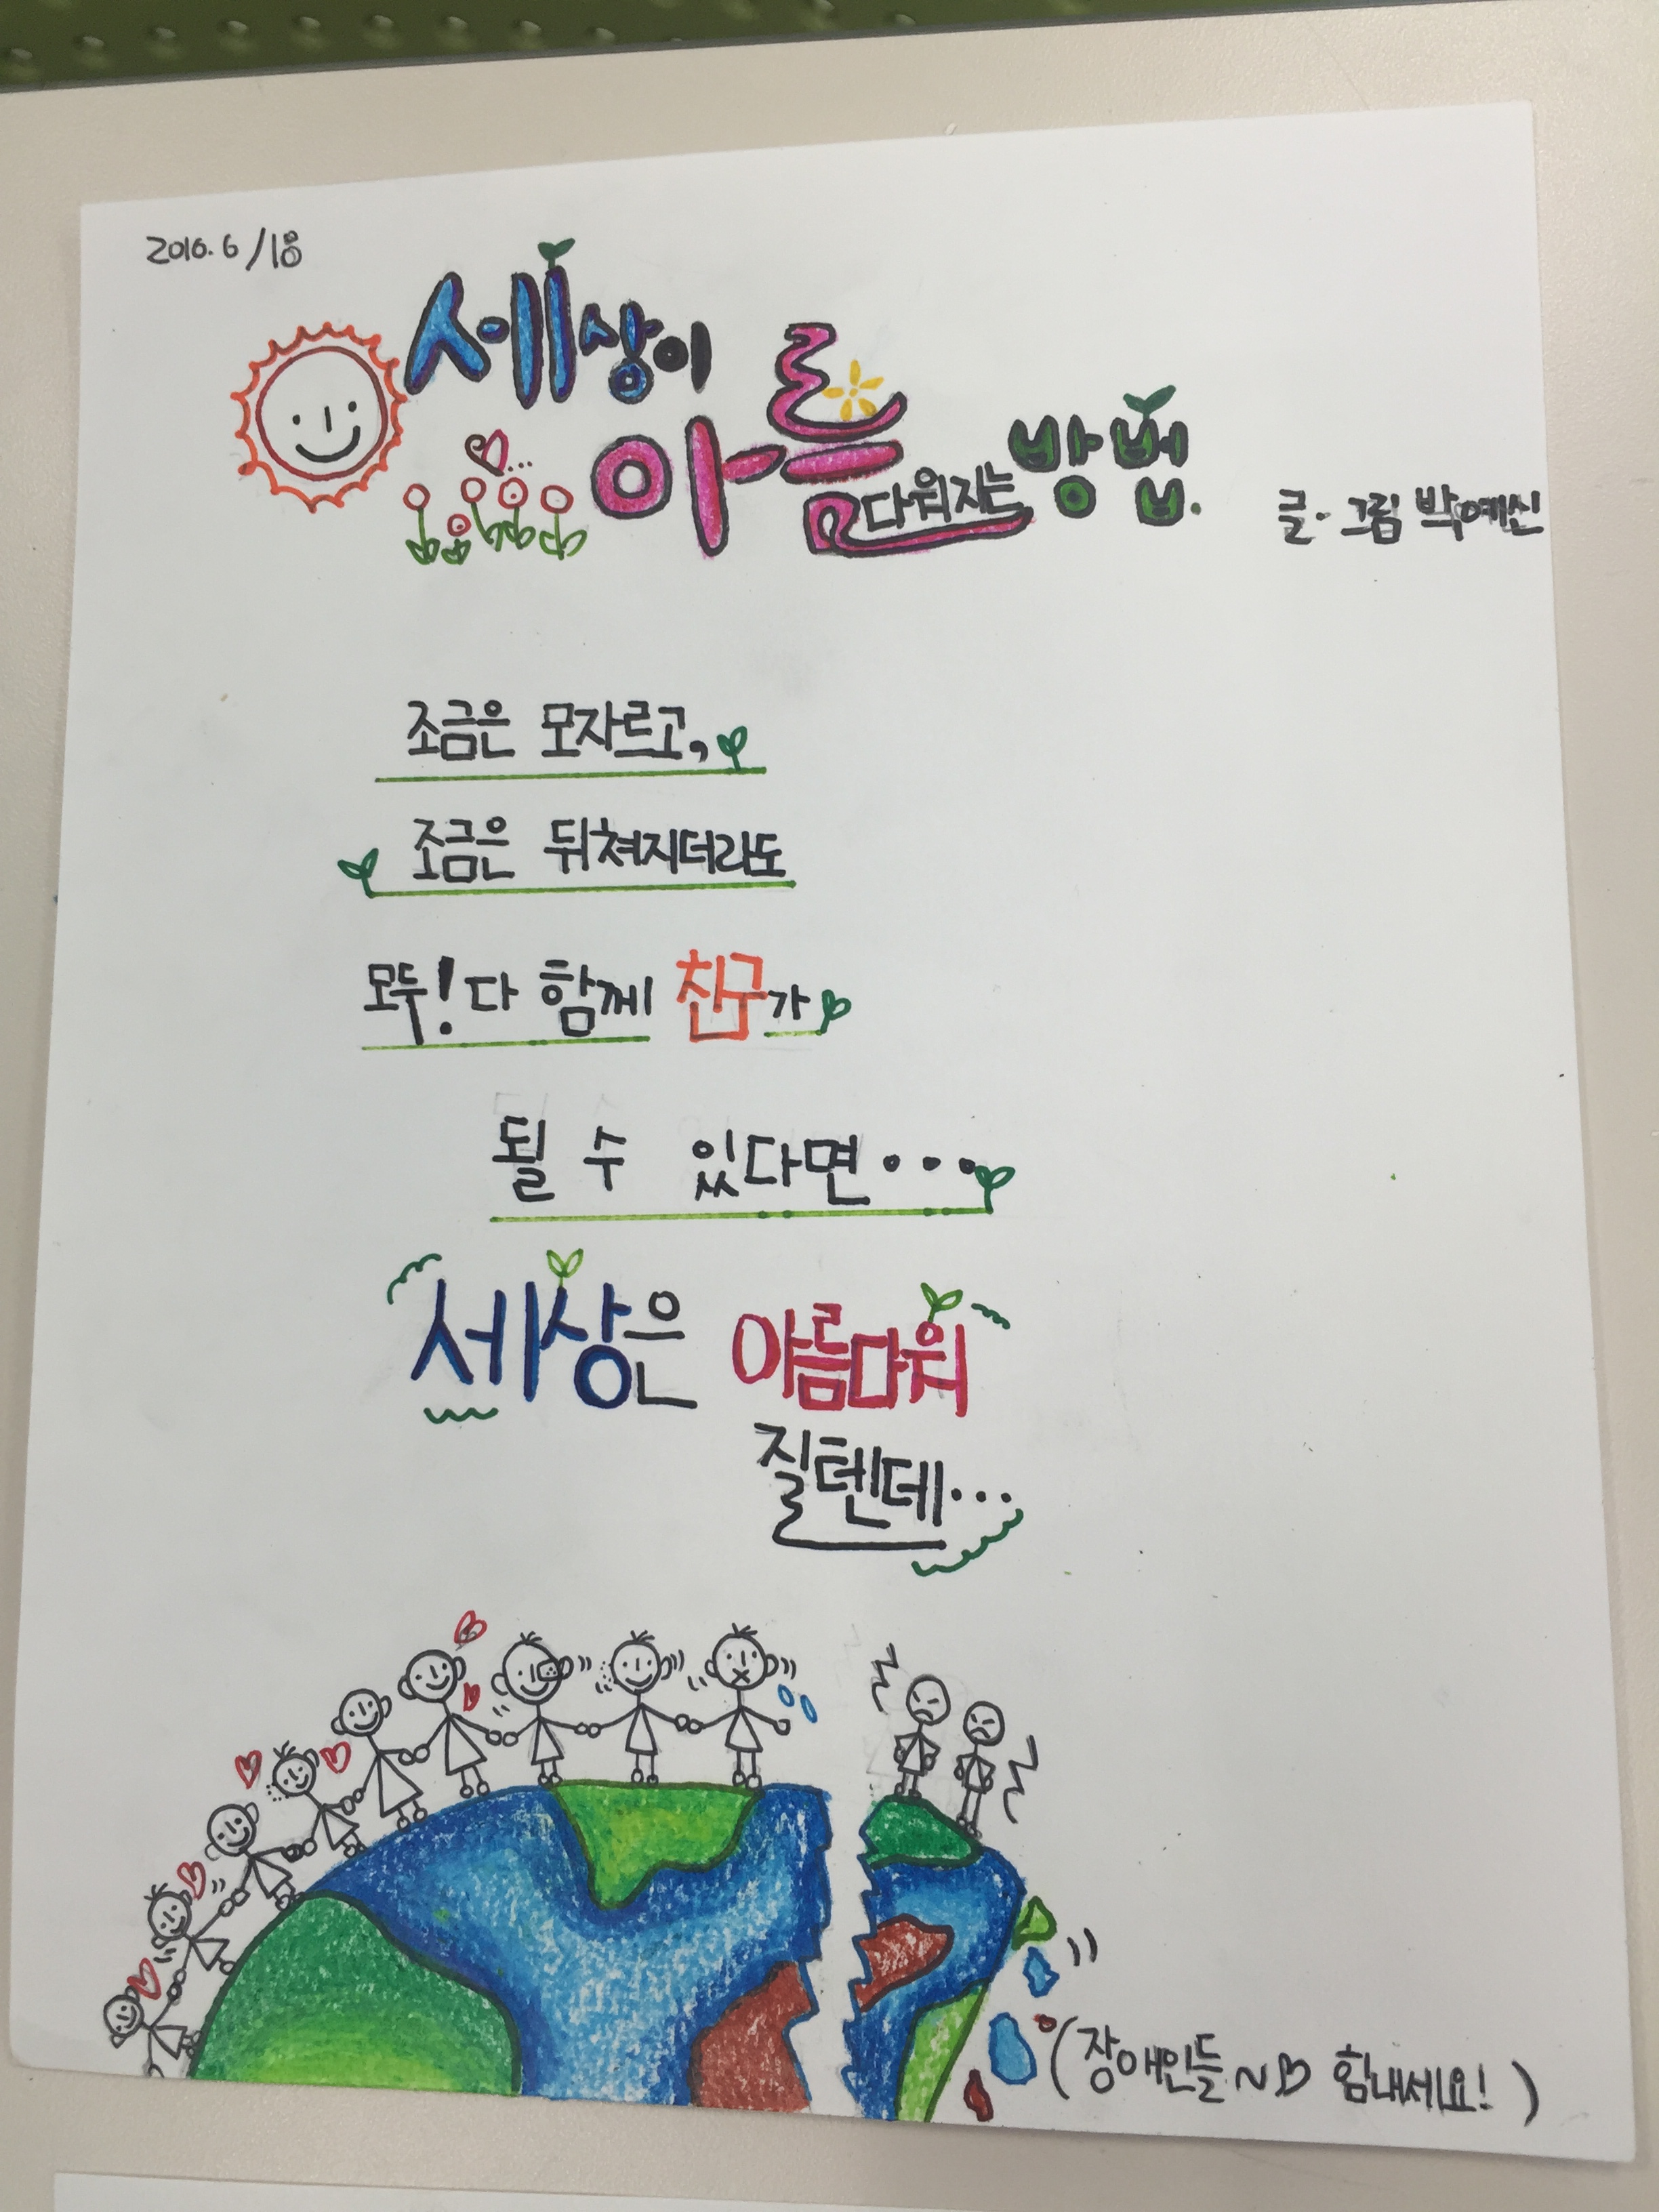 2016. 6/18
세상이
아름다워지는 방법.
글·그림 박예신
조금은 모자르고,
조금은 뒤쳐지더라도
모두! 다 함께 친구가
될 수 있다면...
세상은 아름다워
질텐데...
(장애인들~♡ 힘내세요!)